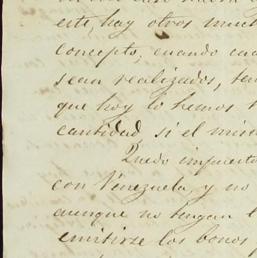 este, hay otros much
concepto, cuando cad
sean realizados, ten
que hoy lo hemos h
cantidad si el mism
Quedo impuesto
con Venezuela, y no
aunque no tengan l
emitirse los bonos